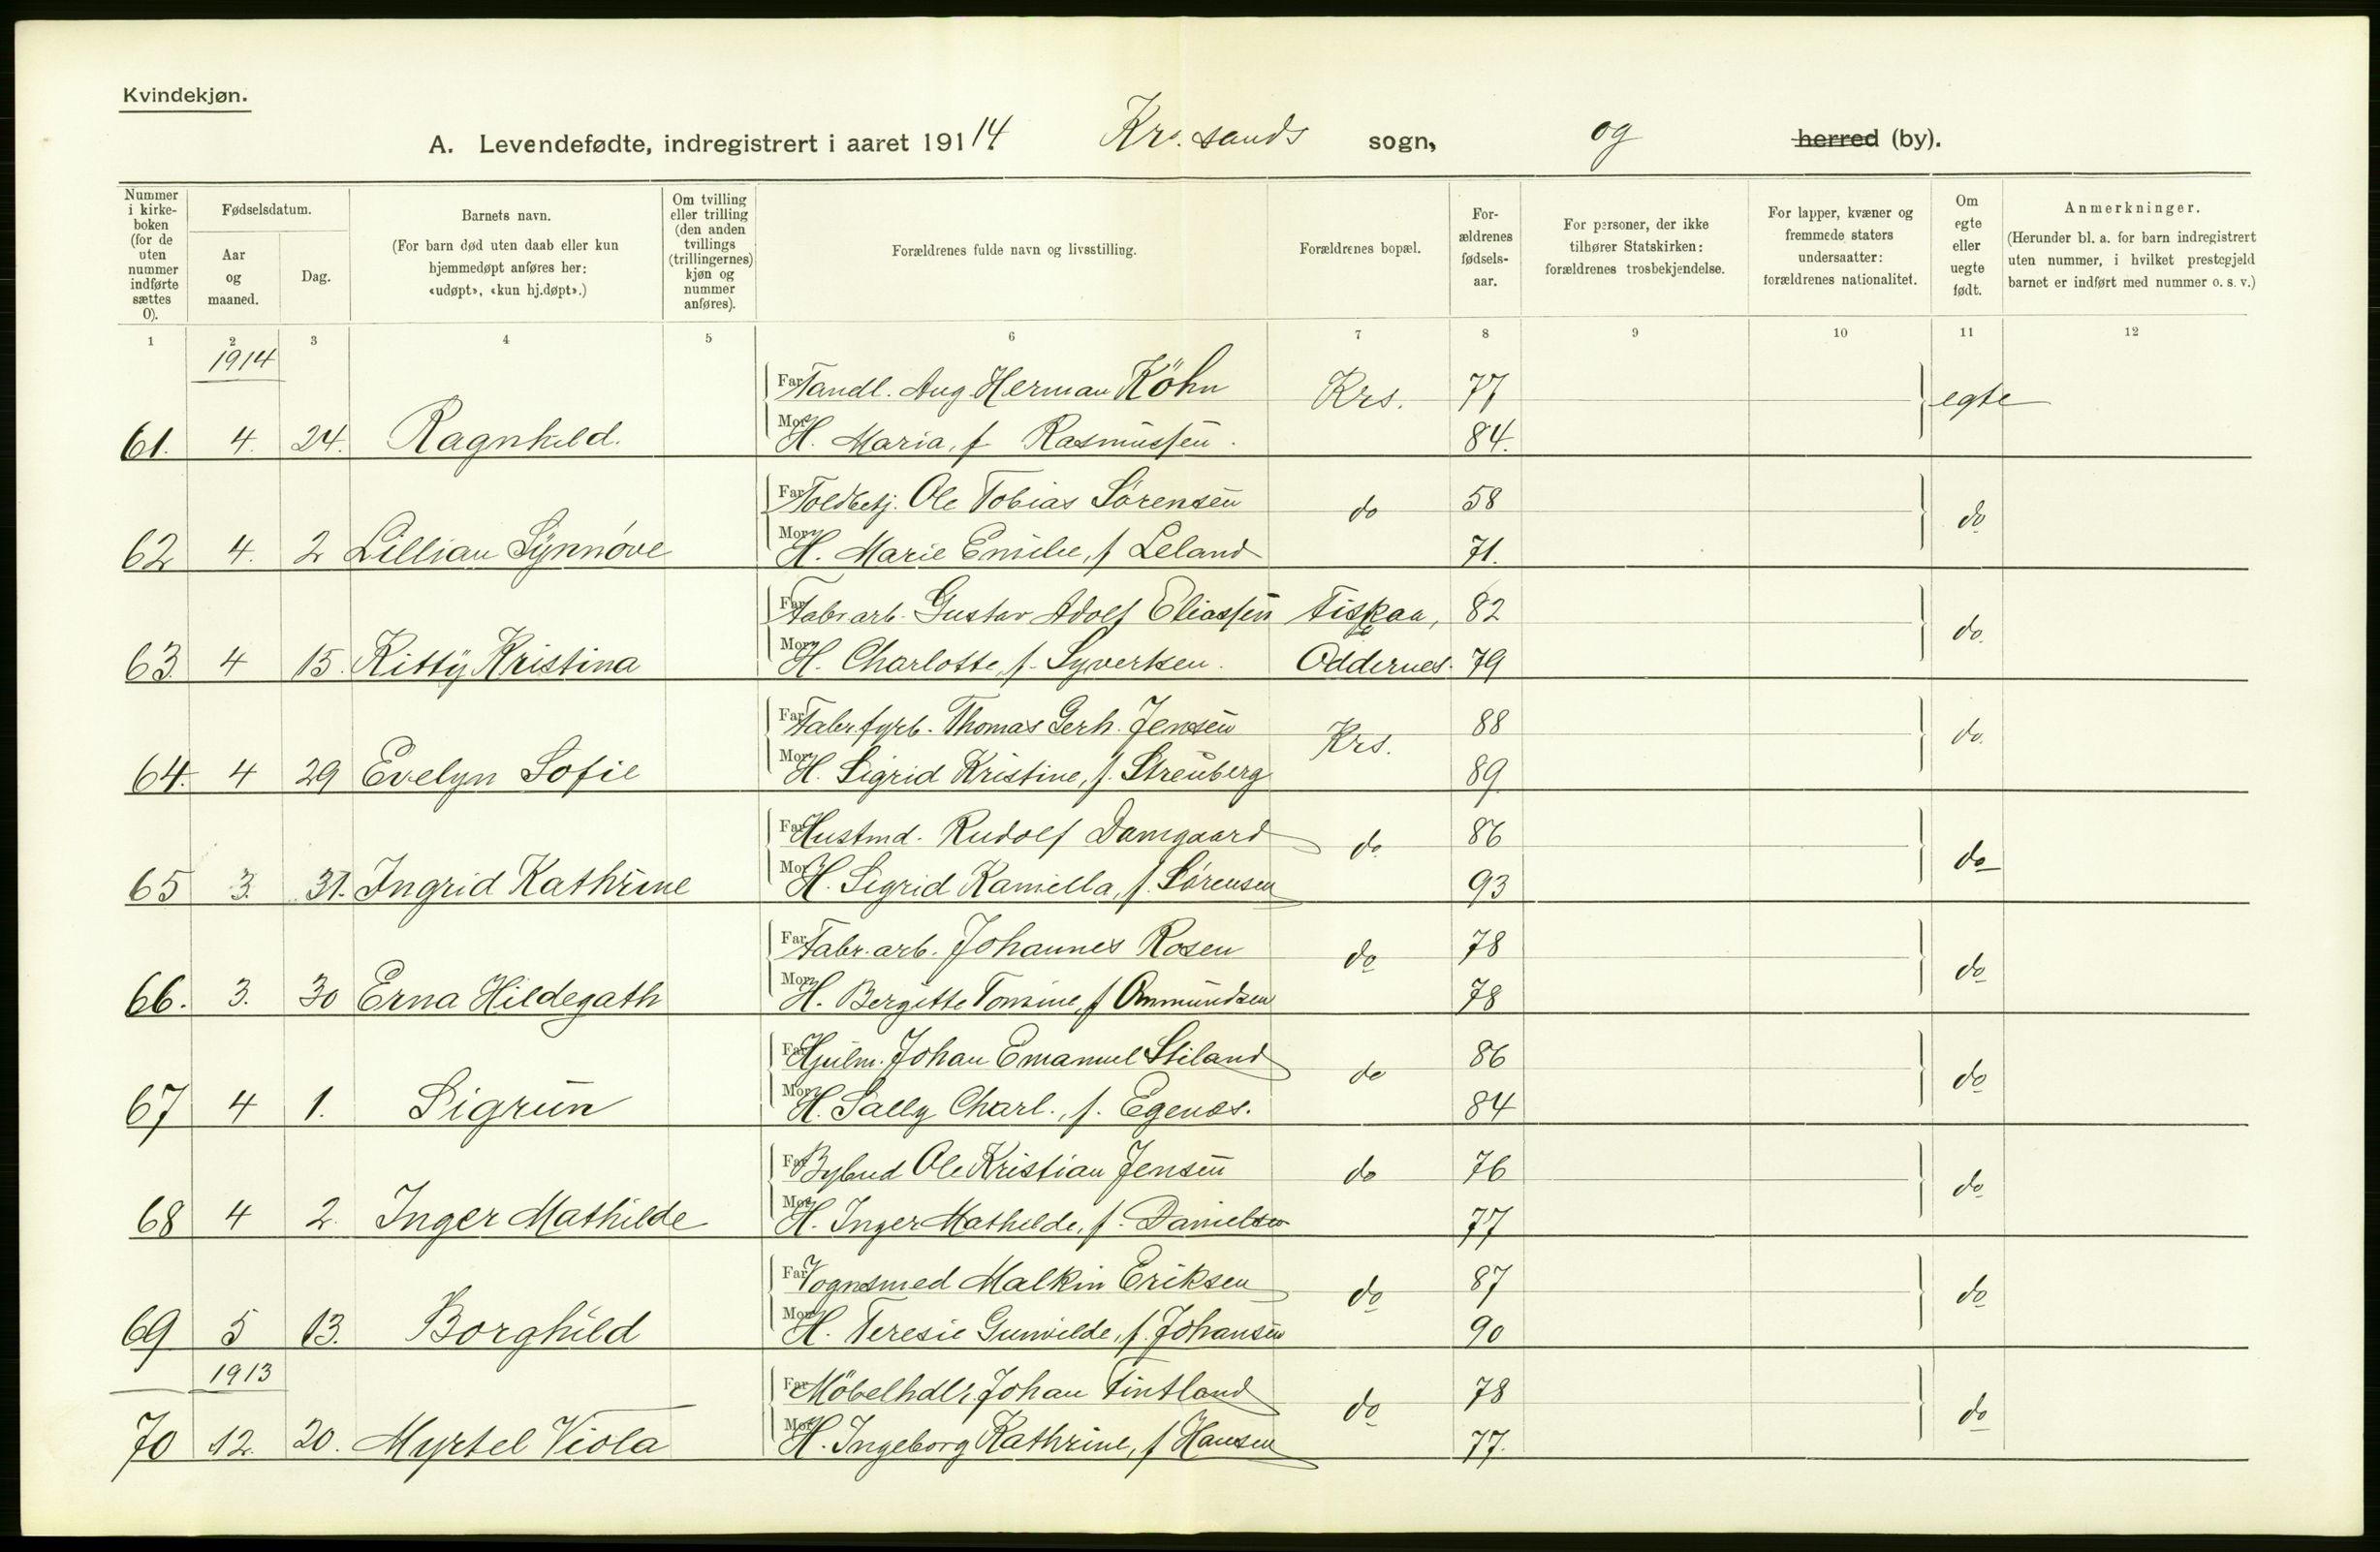 Kvindekjøn.
A. Levendefødte, indregistrert i aaret 19114 Krs. sands sogn, og herred (by).
Nummer i kirke-boken (for de uten nummer indførte sættes 0).
Fødselsdatum.
Aar og maaned.
Dag.
Barnets navn.
(For barn død uten daab eller kun hjemmedøpt anføres her: «udøpt», «kun hj.døpt».)
Om tvilling eller trilling (den anden tvillings (trillingernes) kjøn og nummer anføres).
Forældrenes fulde navn og livsstilling.
Forældrenes bopæl.
For-ældrenes fødsels-aar.
For personer, der ikke tilhører Statskirken: forældrenes trosbekjendelse.
For lapper, kvæner og fremmede staters undersaatter: forældrenes nationalitet.
Om egte eller uegte født.
Anmerkninger.
(Herunder bl. a. for barn indregistrert uten nummer, i hvilket prestegjeld barnet er indført med nummer o. s. v.)
1 2 3 4 5 6 7 8 9 10 11 12
1914
Far Tandl. Aug. Herman Köhn Krs. 77 egte
61. 4. 24. Ragnhild. Mor H. Maria, f. Rasmussen. 84.
Far Toldbetj. Ole Tobias Sörensen do 58 do
62 4. 2 Lillian Synnöve Mor H. Marie Emilie, f Leland 71.
Far Fabr arb. Gustav Adolf Eliassen Fiskaa, 82 do.
63. 4 15. Kitty Kristina Mor H. Charlotte, f. Syvertsen. Oddernes. 79
Far Fabr. fyrb. Thomas Gerh. Jensen Krs. 88 do.
64. 4 29 Evelyn Sofie Mor H. Sigrid Kristine, f. Strenberg 89
Far Hustmd. Rudolf Damgaard do. 86 do
65 3. 31. Ingrid Kathrine Mor H. Sigrid Kamilla, f. Sörensen 93
Far Fabr. arb. Johannes Rosen do 78 do
66. 3. 30 Erna Hildegath Mor H. Bergitte Tomine, f Ommundsen 78
Far Hjulm. Johan Emanuel Stiland do 86 do
67 4 1. Sigrun Mor H. Sally Charl., f. Egenes. 84
Far Bybud Ole Kristian Jensen do 76 do
68 4 2. Inger Mathilde Mor H. Inger Mathilde, f. Danielsen 77
Far Vognsmed Malkin Eriksen do 87 do
69 5 13. Borghild Mor H. Teresie Gunvilde, f. Johansen 90
1913
Far Möbelhdlr. Johan Fintland do 78 do
70 12. 20. Myrtel Viola Mor H. Ingeborg Kathrine, f Hansen 77.